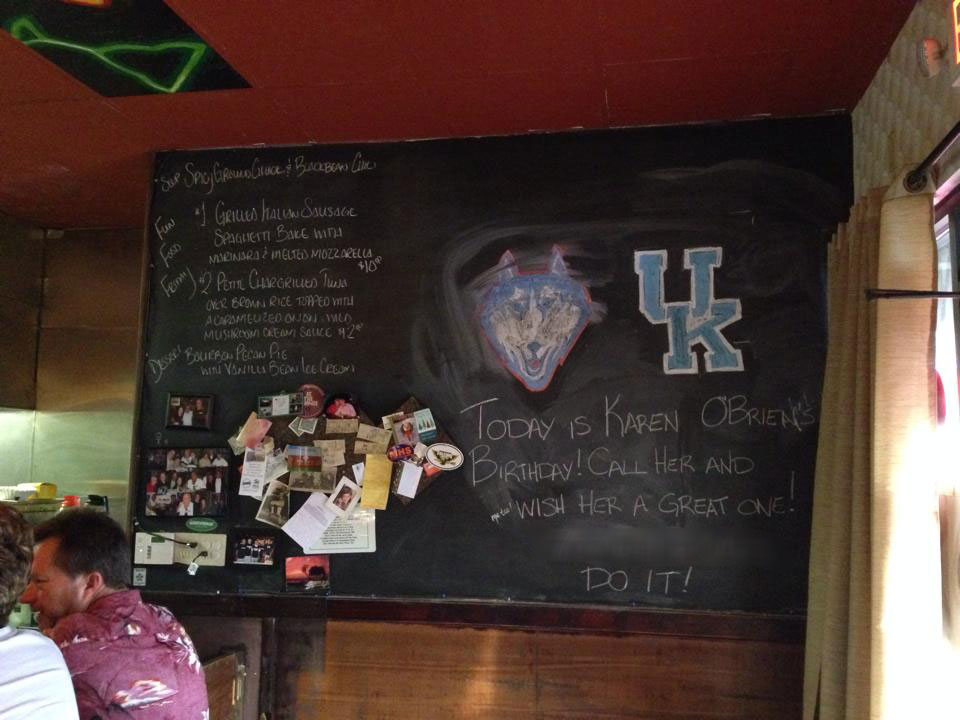 Soup Spicy Ground Chuck & Blackbean Chili
Fun
Food
Friday
#1 Grilled Italian Sausage
Spaghetti Bake with
Marinara & melted mozzarella
$10
#2 Petite Chargrilled Tuna
over brown rice topped with
a caramelized onion & wild
mushroom cream sauce $12
Dessert Bourbon Pecan Pie
with Vanilla Bean Ice Cream
UK
Today is Karen O'Brien's
Birthday! Call her and
wish her a great one!
Do it!